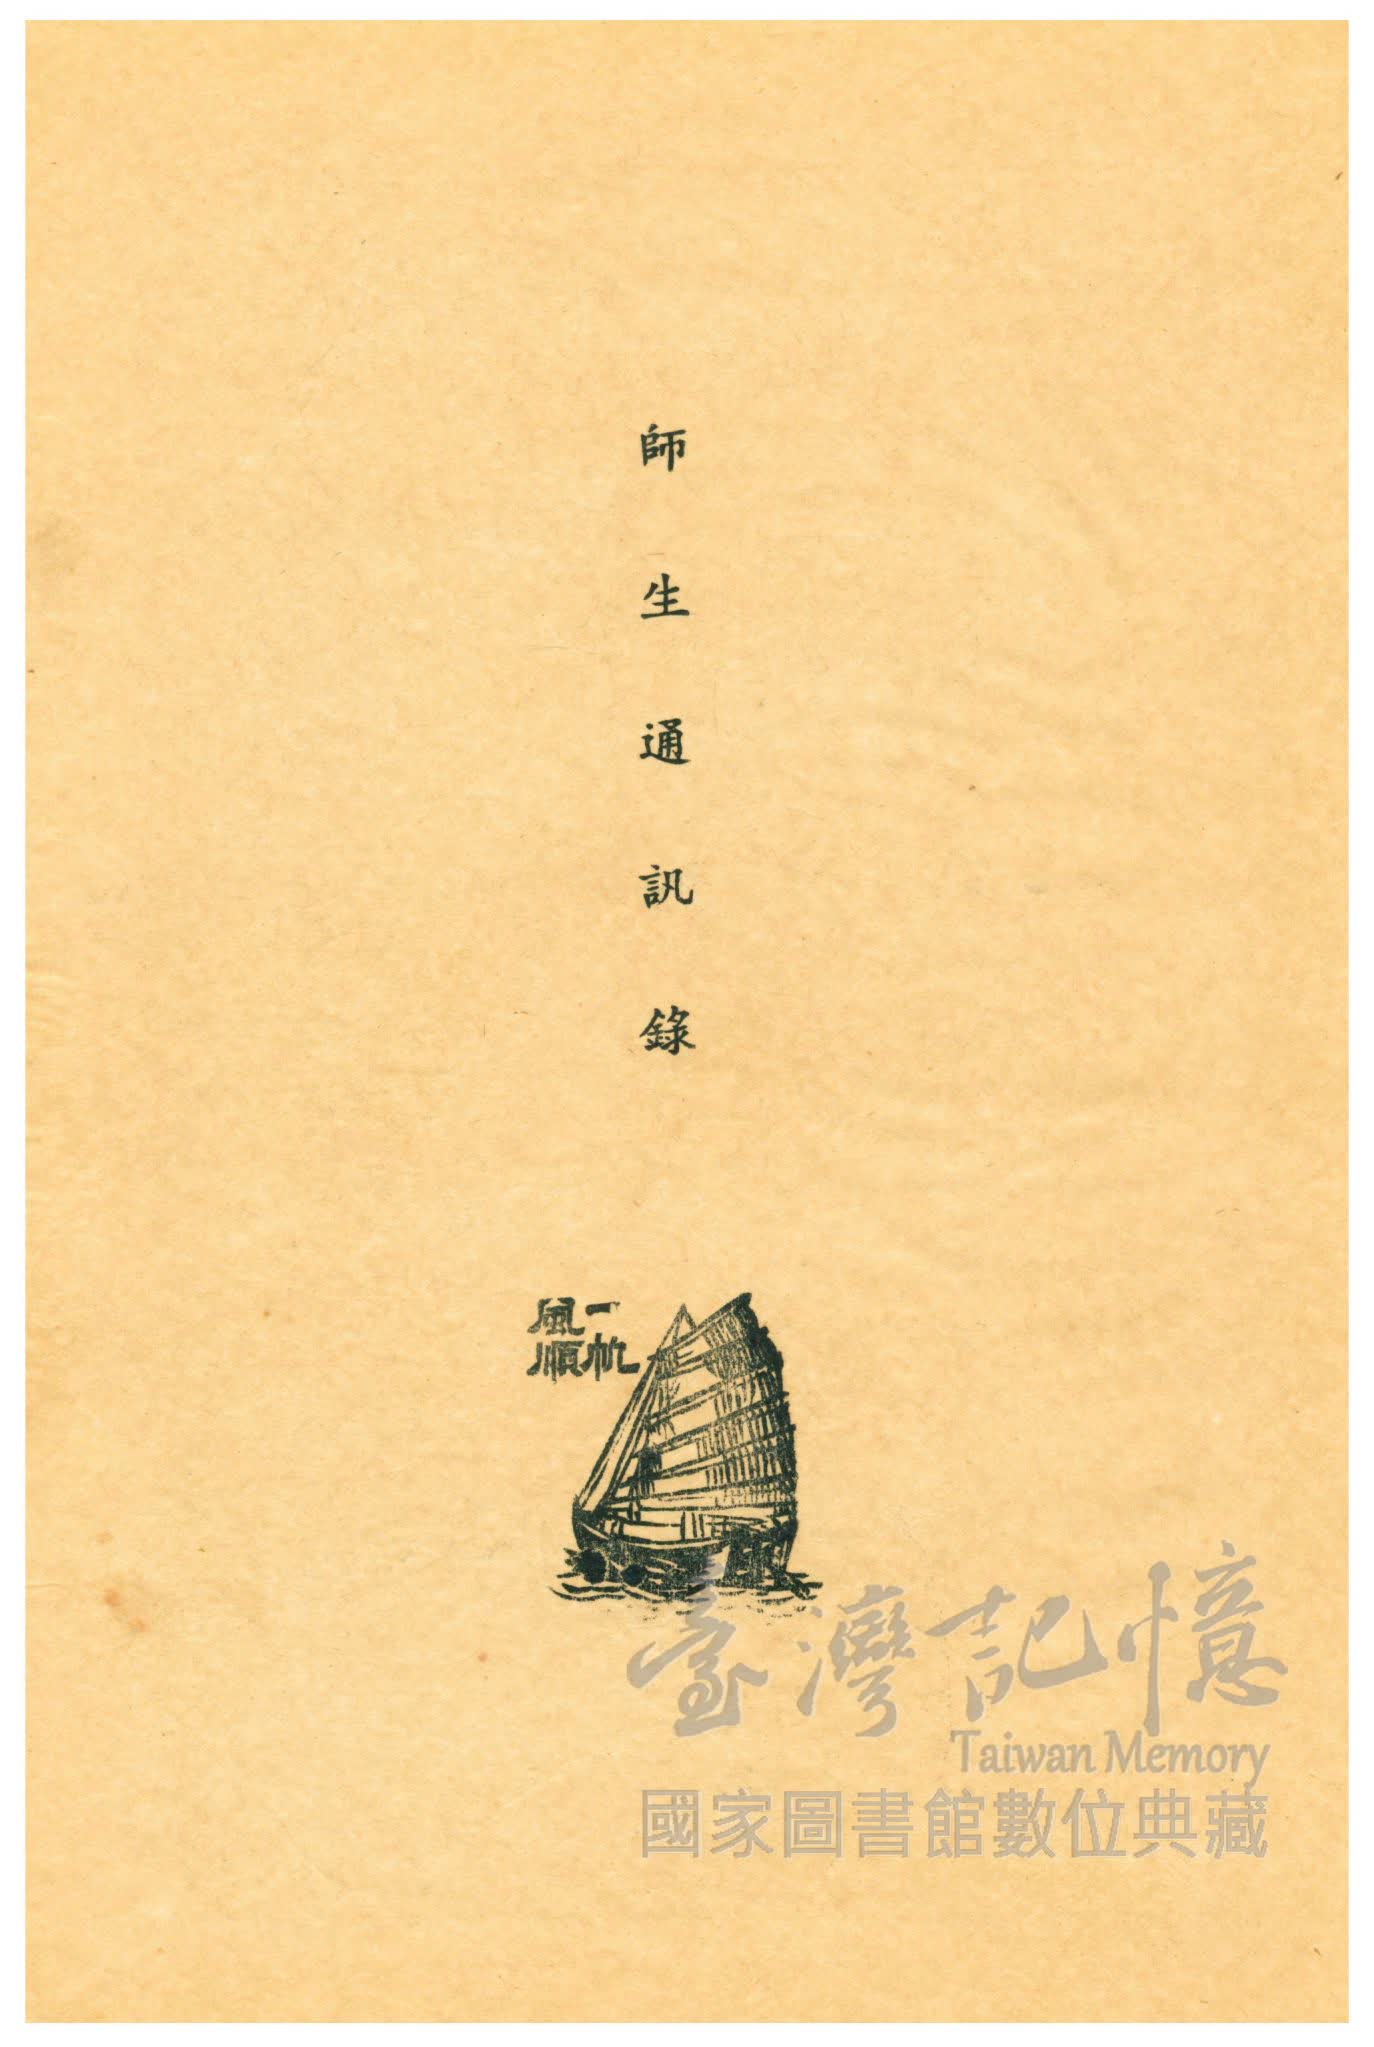 師生通訊錄
一帆
風順
臺灣記憶
Taiwan Memory
國家圖書館數位典藏